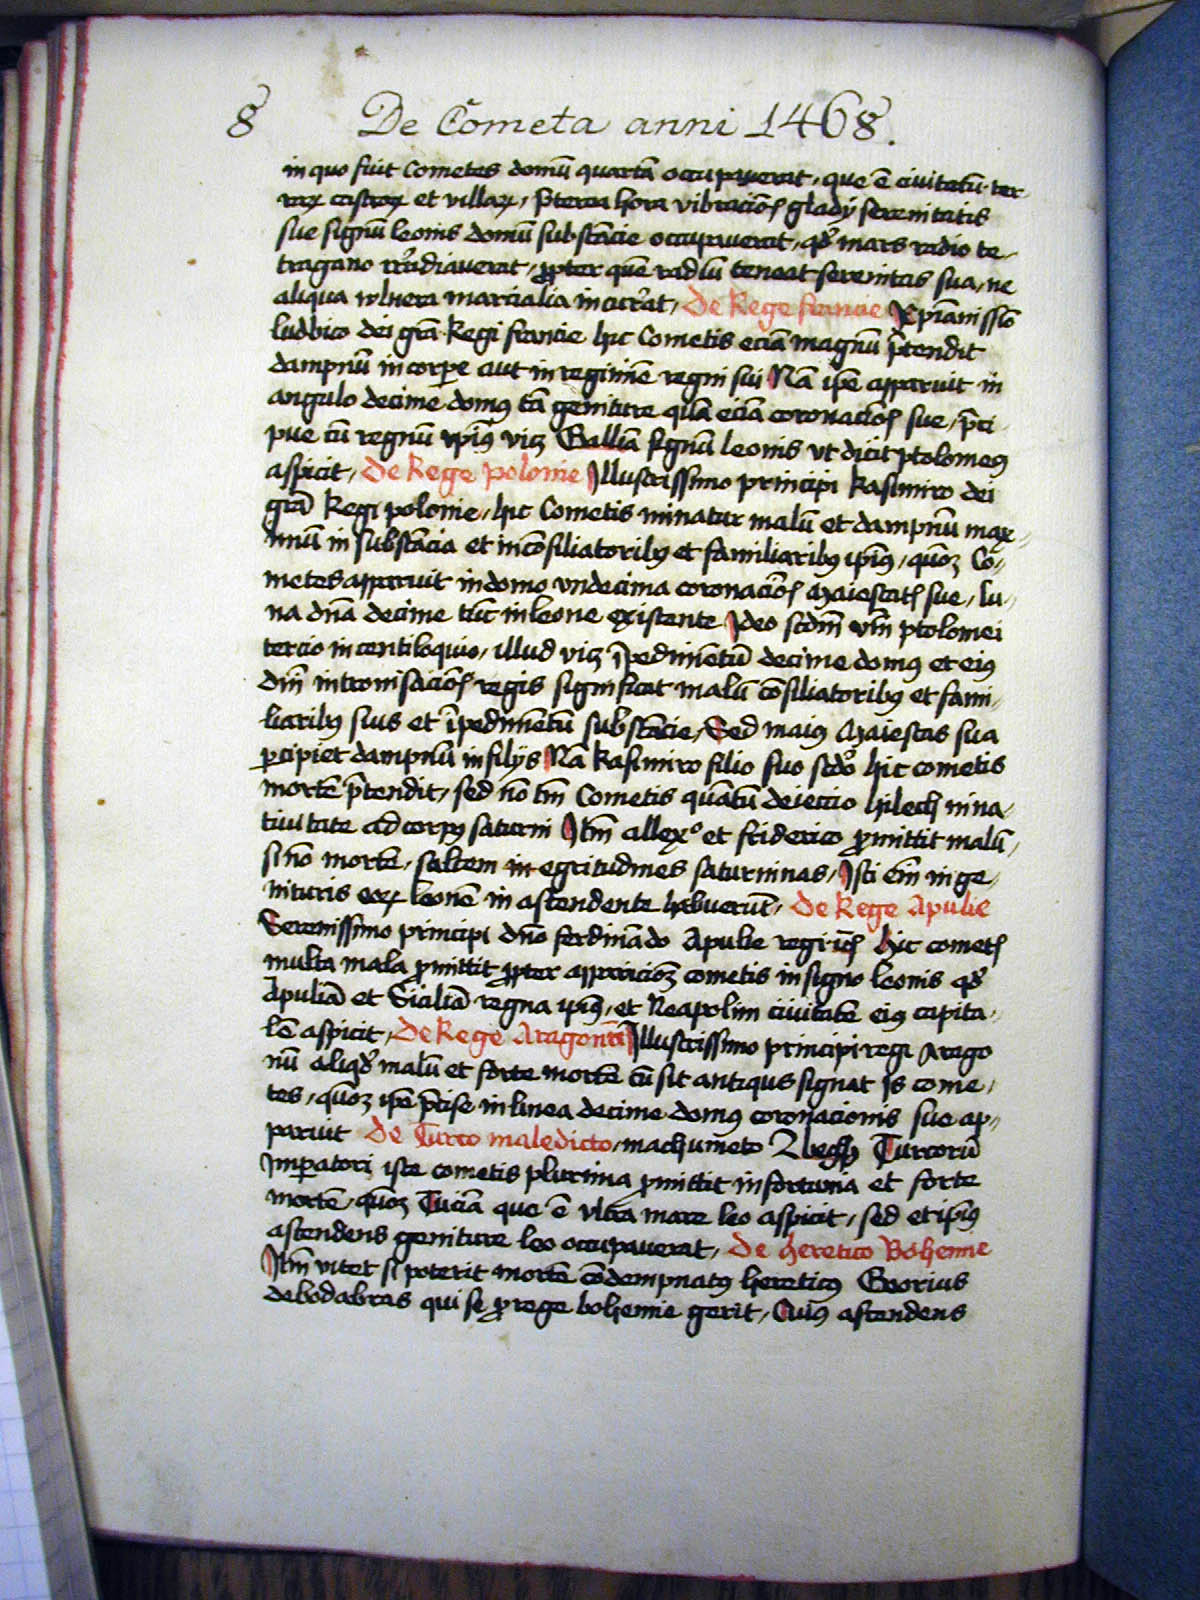 8 De Cometa anni 1468.
in quo fuit Cometes domū quartā occupaverat, que ē civitatū ter
raꝝ castroꝝ et villaꝝ, p̄terea hora vibraciōꝭ gladij serenitatis
sue signū leonis domū substācie occupaverat, qd̓ mars radio te,
tragano irradiaverat, ꝓpter quē radiū teneat serenitas sua, ne
aliqua wlnera marcialia incurrat, De Rege francie Xp̄ianissīo
ludovico dei grā Regi francie hic Cometis eciā magnū p̄tendit
dampnū in corpe aut in regimīe regni sui Nā ipē apparuit in
angulo decime domꝰ tā geniture quā eciā coronaciōꝭ sue, p̄ci
pue cū regnū ipiꝰ vicꝫ Galliā signū leonis vt dicit ptolomeꝰ
aspicit, De Rege polonie Illustrissimo principi kasimiro dei
grā Regi polonie, hic Cometis minatur malū et dampnū max
imū in substācia et incōsiliatoribꝰ et familiaribꝰ ipiꝰ, quōꝫ Co,
metes apparuit in domo vndecima coronaciōꝭ Maiestatꝭ sue, lu,
na dnā decime tūc in leone existente Ideo scdm̄ vm̄ ptolomei
tercio in centiloquio, illud vicꝫ īpedimētū decime domꝰ et eiꝰ
dnī intronisaciōꝭ regis significat malū cōsiliatoribꝰ et fami,
liaribꝰ suis et īpedimētū substācie, Sed maiꝰ Maiestas sua
ꝑcipiet dampnū in filijs Nā kasimiro filio suo scdo̊ hic cometis
mortē p̄tendit, sed nō tm̄ Cometis quātū deiectio hilech in na,
tiuitate ad corpꝰ saturni Itm̄ allexº et friderico ꝓmittit malū,
si nō mortē, saltem in egritudines saturninas, Isti em̄ in ge,
nituris eoꝝ leonē in ascendente habuerūt, De Rege Apulie
Serenissimo principi dn̄o ferdinādo Apulie regi icꝭ hic cometꝭ
multa mala ꝓmittit ꝓpter appariciōꝫ cometis in signo leonis qd̓
Apuliā et Siciliā regna ipiꝰ, et Neapolim civitatē eiꝰ capita,
lē aspicit, De Rege Aragonū Illustrissimo principi regi Arago
nū aliqd̓ malū et forte mortē cū sit antiqus signat Is come,
tes, quōꝫ ipē p̄cise in linea decime domꝰ coronacionis sue ap,
paruit De Turco maledicto, machumeto Turcorū
Imperatori iste cometis plurima ꝓmittit infortunia et forte
mortē, quōꝫ Tuciā que ē vltra mare leo aspicit, sed et ipiꝰ
ascendens geniture leo occupaverat, De heretico Bohemie
Itm̄ vitet si poterit mortē cōdempnatꝰ hereticꝰ Georius
debodabras qui se ꝓ rege bohemie gerit, Cuiꝰ ascendens